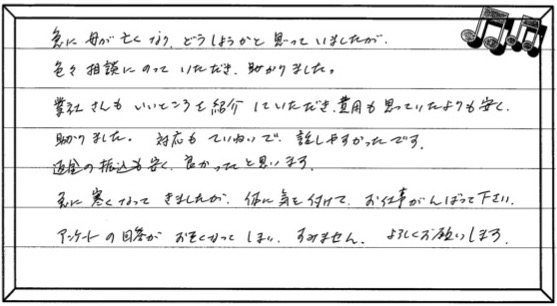 急に母が亡くなり、どうしようかと思っていましたが、
色々相談にのっていただき、助かりました。
業社さんもいいところを紹介していただき、費用も思っていたよりも安く、
助かりました。対応もていねいで、話しやすかったです。
返金の振込も早く、良かったと思います。
急に寒くなってきましたが、体に気を付けて、お仕事がんばって下さい。
アンケートの回答がおそくなってしまい、すみません。よろしくお願いします。